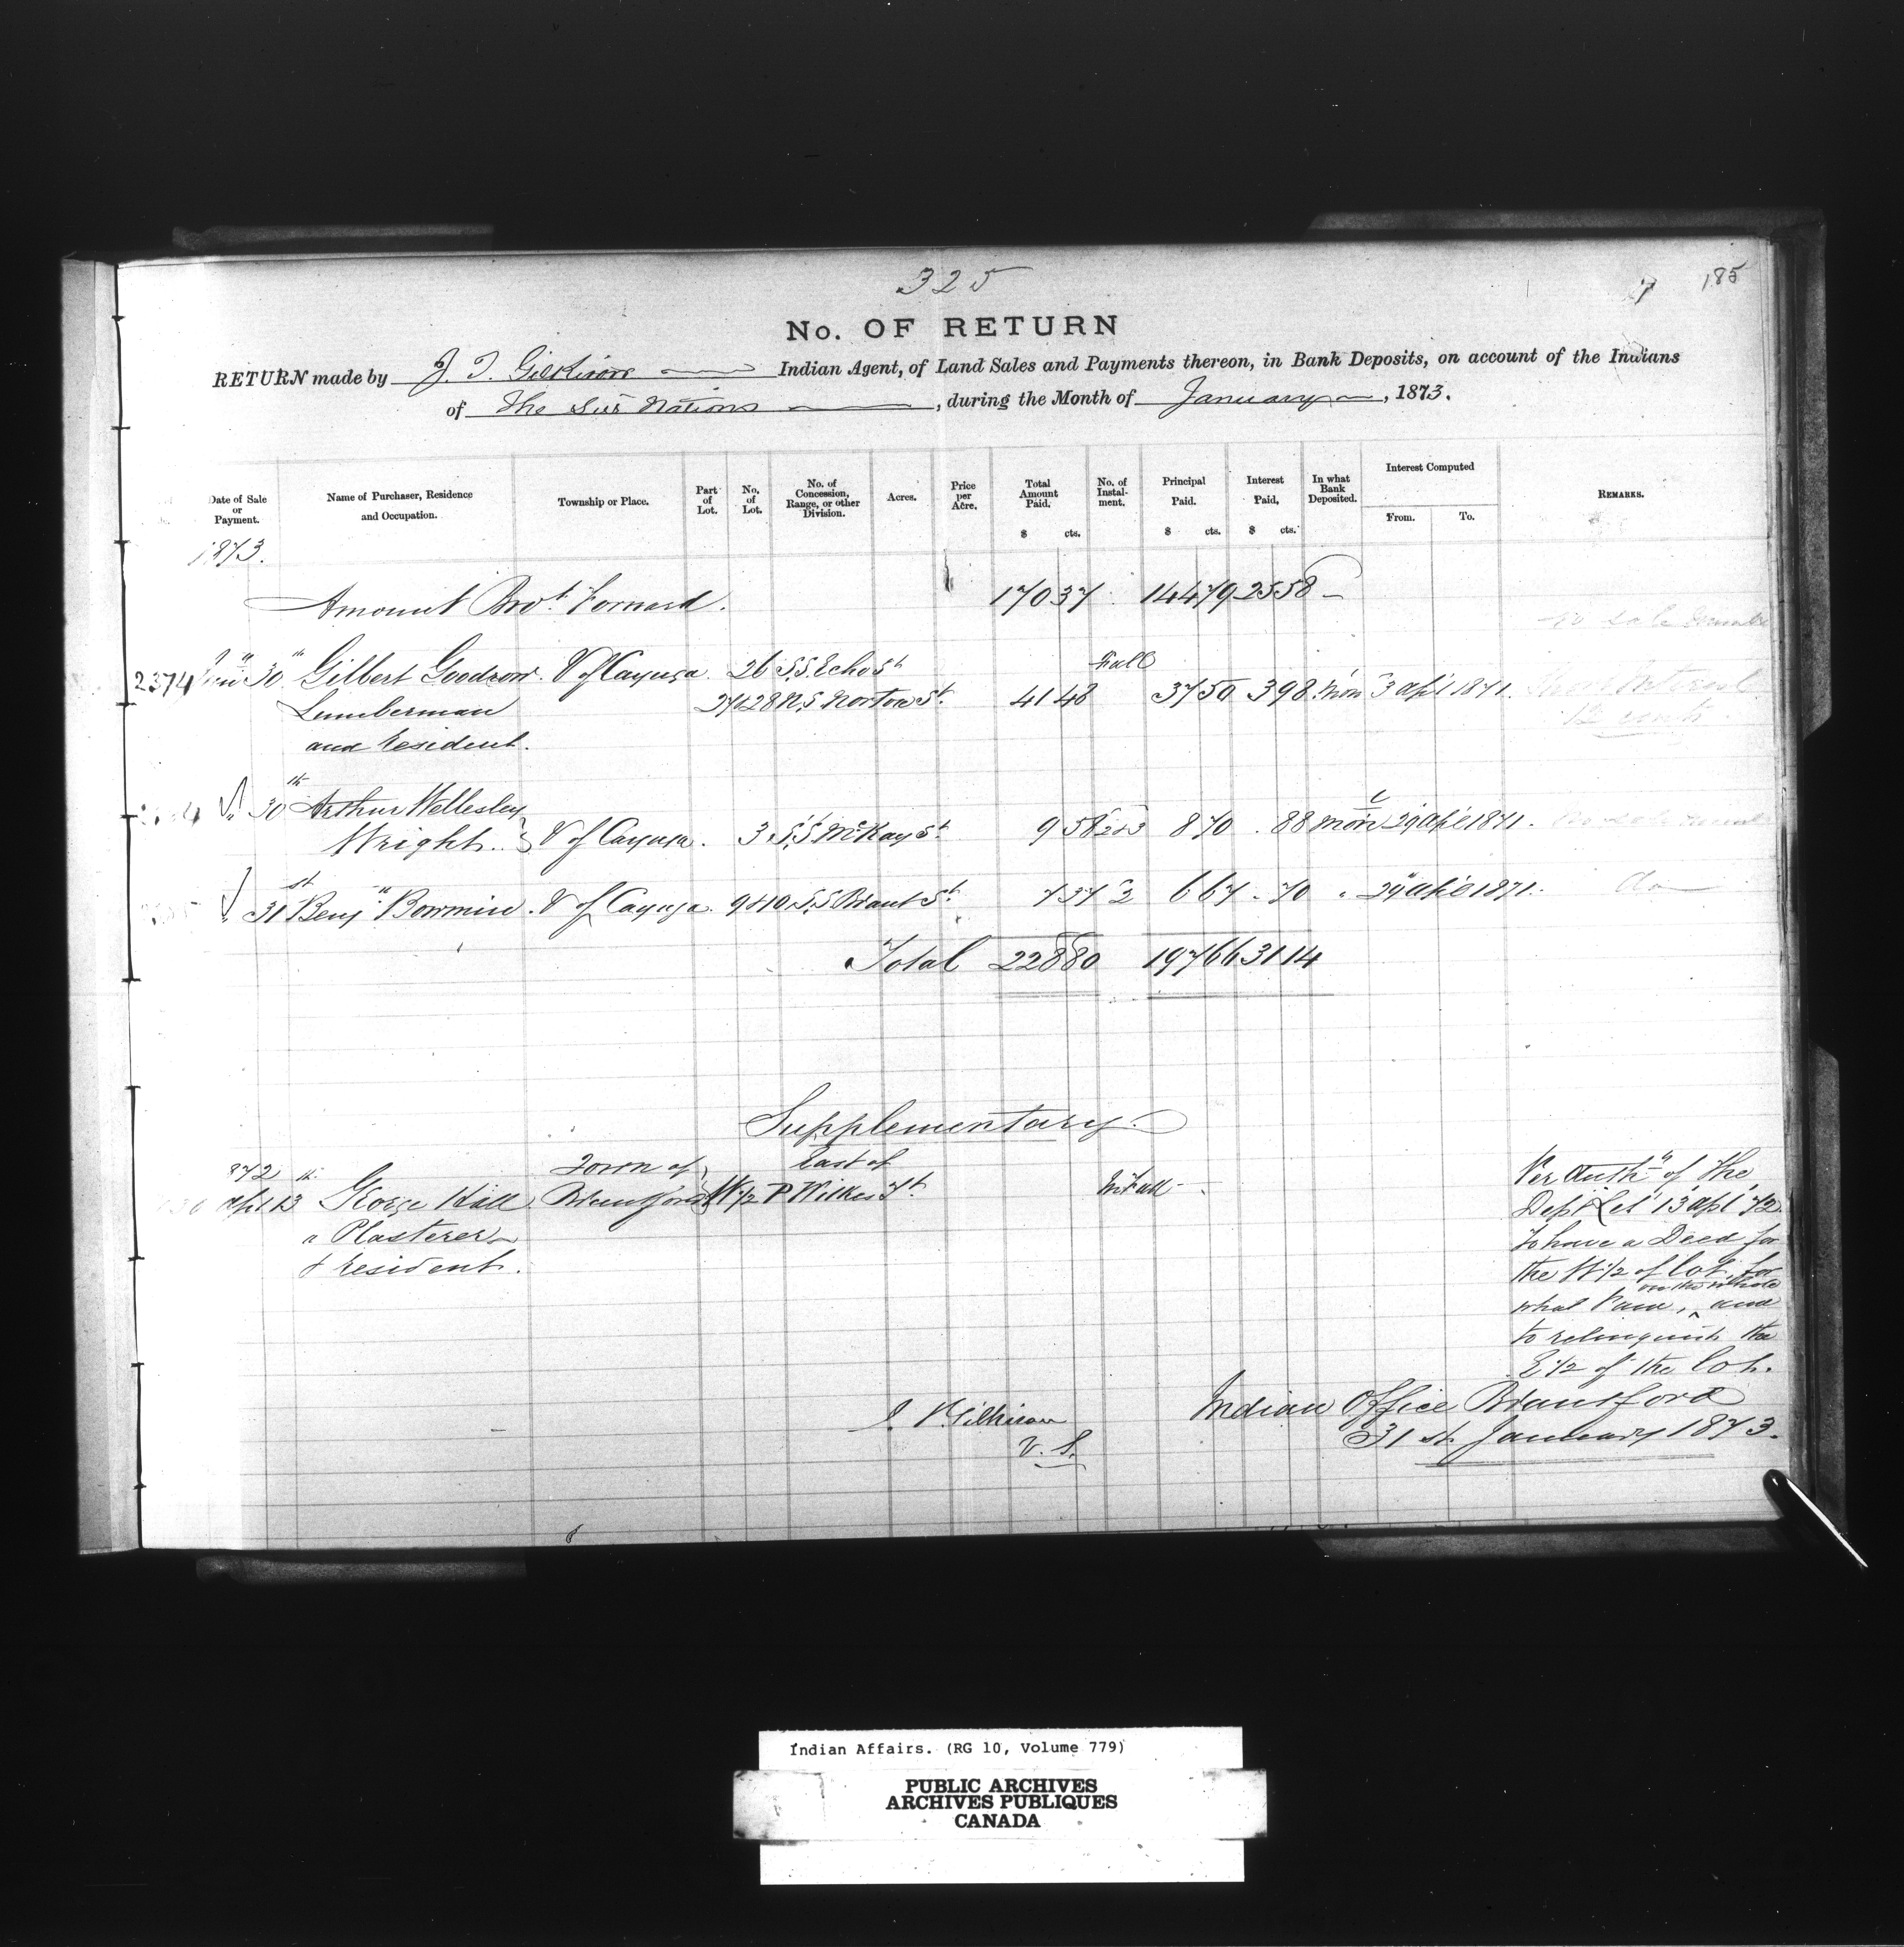 325
7 185
No. OF RETURN
RETURN made by J. T. Gilkison Indian Agent, of Land Sales and Payments thereon, in Bank Deposits, on account of the Indians
of the Six Nations, during the Month of January, 1873.
Date of Sale or Payment. Name of Purchaser, Residence and Occupation. Township or Place. Part of Lot. No. of Lot. No. of Concession, Range, or other Division. Acres. Price per Acre. Total Amount Paid. $ cts. No. of Instalment. Principal Paid. $ cts. Interest Paid, $ cts. In what Bank Deposited. Interest Computed From. To. REMARKS.
1873.
Amount Brot. Forward. 170 37 144 79 25 58
no sale
2374 30th Gilbert Goodrow. V of Cayuga. 26 S.S. Echo St Full
27&28 N.S Norton St. 41 48 37 50 3 98 Mon 3 Apl 1871. Interest
Lumberman 12
and Resident.
30th Arthur Wellesley
Wright. V of Cayuga. 3 S.S McKay St. 9 58 2&3 8 70 . 88 Mon 29 Apl 1871.
31st Benjn Bowmin. V of Cayuga. 9&10 S.S Brant St. 7 37 2 6 67 . 70 " 29 Apl 1871. do
Total 228 80 197 66 31 14
Supplementary.
872 Town of East of
Apl 13th George Hall Brantford W 1/2 P Wilkes St In Full
a Plasterer
& resident.
Per Authy of the
Dept Let 13 Apl 72
to have a Deed for
the W 1/2 of lot, for
on the whole
what Paid, and
to relinquish the
E 1/2 of the lot.
J. T. Gilkison
V. S.
Indian Office Brantford
31st January 1873.
Indian Affairs. (RG 10, Volume 779)
PUBLIC ARCHIVES
ARCHIVES PUBLIQUES
CANADA